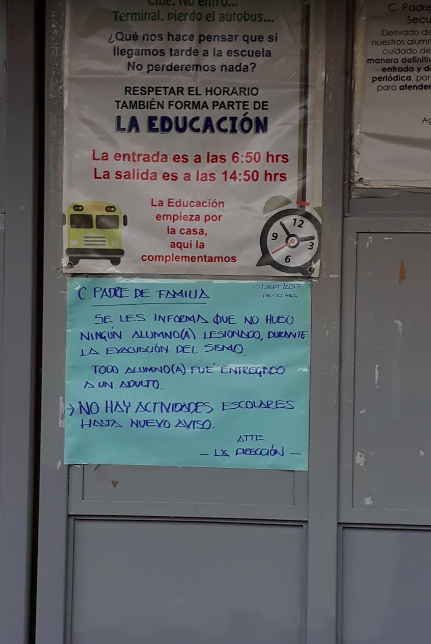 Cine. No entro...
Terminal, pierdo el autobus...
¿Qué nos hace pensar que si
llegamos tarde a la escuela
No perderemos nada?
RESPETAR EL HORARIO
TAMBIÉN FORMA PARTE DE
LA EDUCACIÓN
La entrada es a las 6:50 hrs
La salida es a las 14:50 hrs
La Educación
empieza por
la casa,
aqui la
complementamos
12
9
3
6
C. PADRE DE FAMILIA
19/SEPT/2017
SE LES INFORMA QUE NO HUBO
NINGÚN ALUMNO(A) LESIONADO, DURANTE
LA EVACUACIÓN DEL SISMO.
TODO ALUMNO(A) FUÉ ENTREGADO
A UN ADULTO.
> NO HAY ACTIVIDADES ESCOLARES
HASTA NUEVO AVISO.
ATTE
- LA DIRECCIÓN -
C. Padre
Secu
Derivado de
nuestros alumn
cuidado de
manera definitiv
entrada y d
periódica, por
para atender